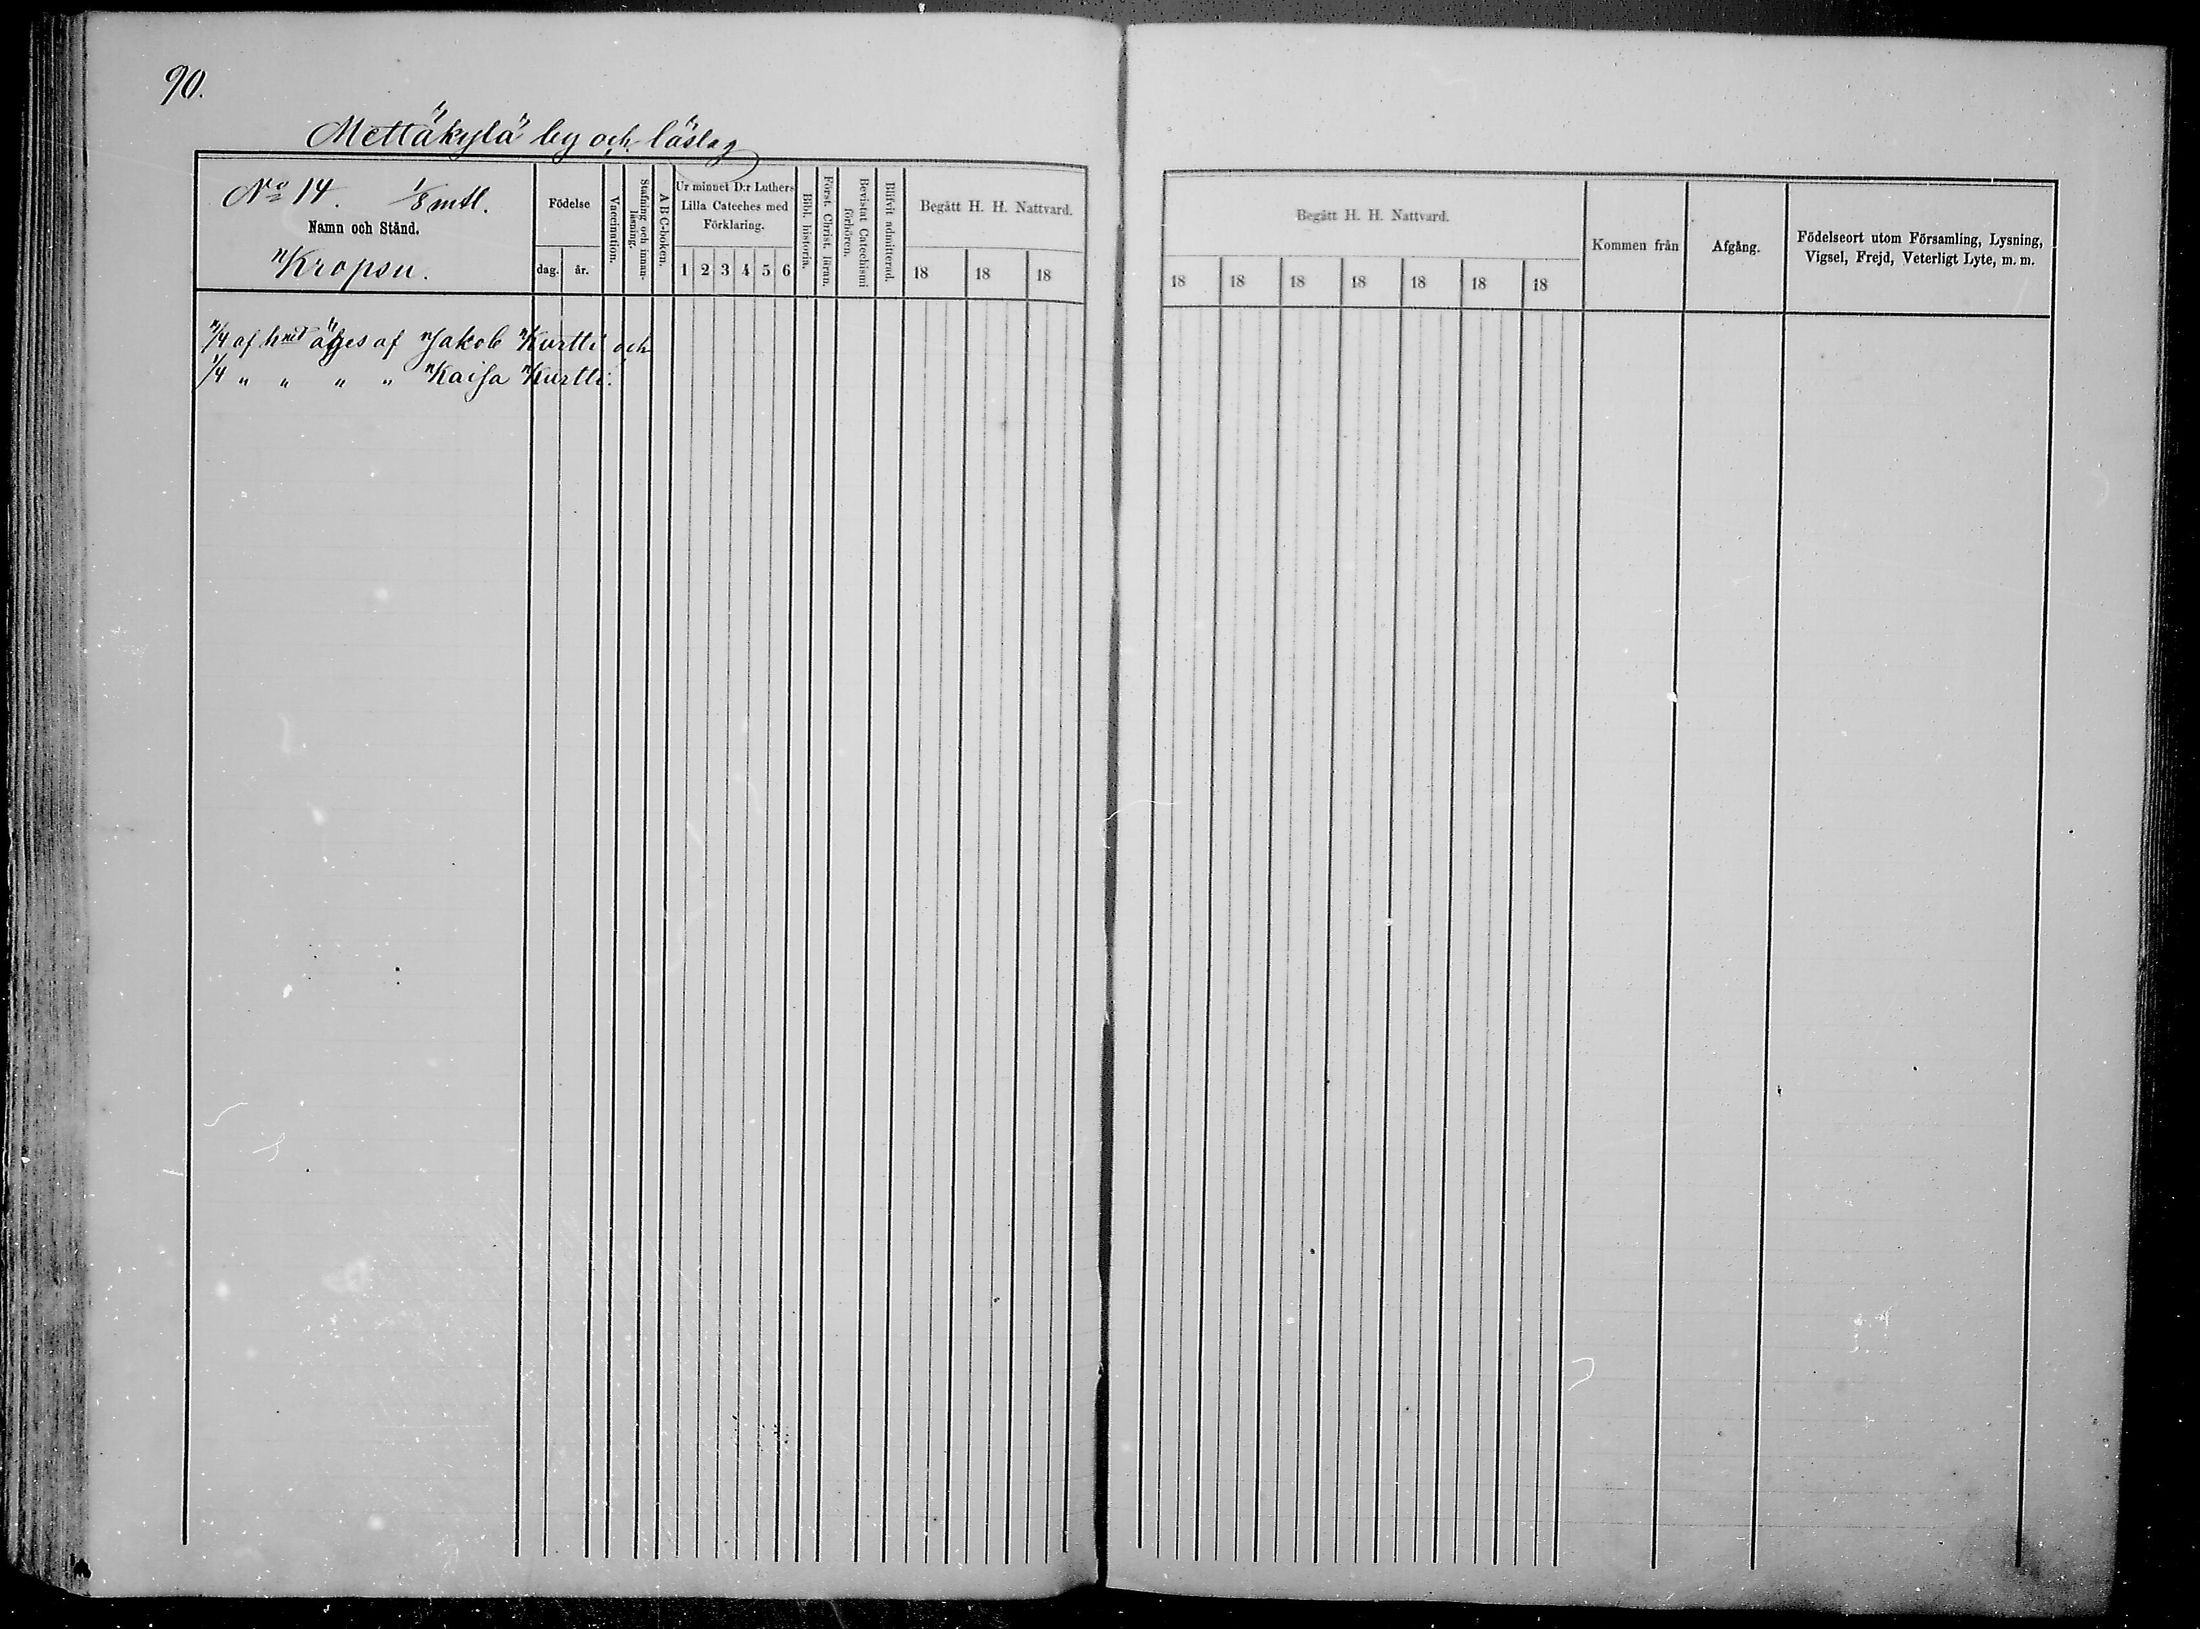 90.
Mettäkylä by och läslag
No 14. 1/8 mtl.
Namn och Stånd.
Kropsu.
Födelse
dag. år.
Vaccination.
Stafning och innan-
läsning.
ABC-boken.
Ur minnet D:r Luthers
Lilla Cateches med
Förklaring.
1 2 3 4 5 6
Bibl. historia.
Först. Christ. läran.
Bevistat Catechismi
förhören.
Blifvit admitterad.
Begått H. H. Nattvard.
18 18 18
1/4 af hmt äges af Jakob Kurtti och
1/4 " " " " Kaisa Kurtti.
Begått H. H. Nattvard.
18 18 18 18 18 18 18
Kommen från
Afgång.
Födelseort utom Församling, Lysning,
Vigsel, Frejd, Veterligt Lyte, m. m.